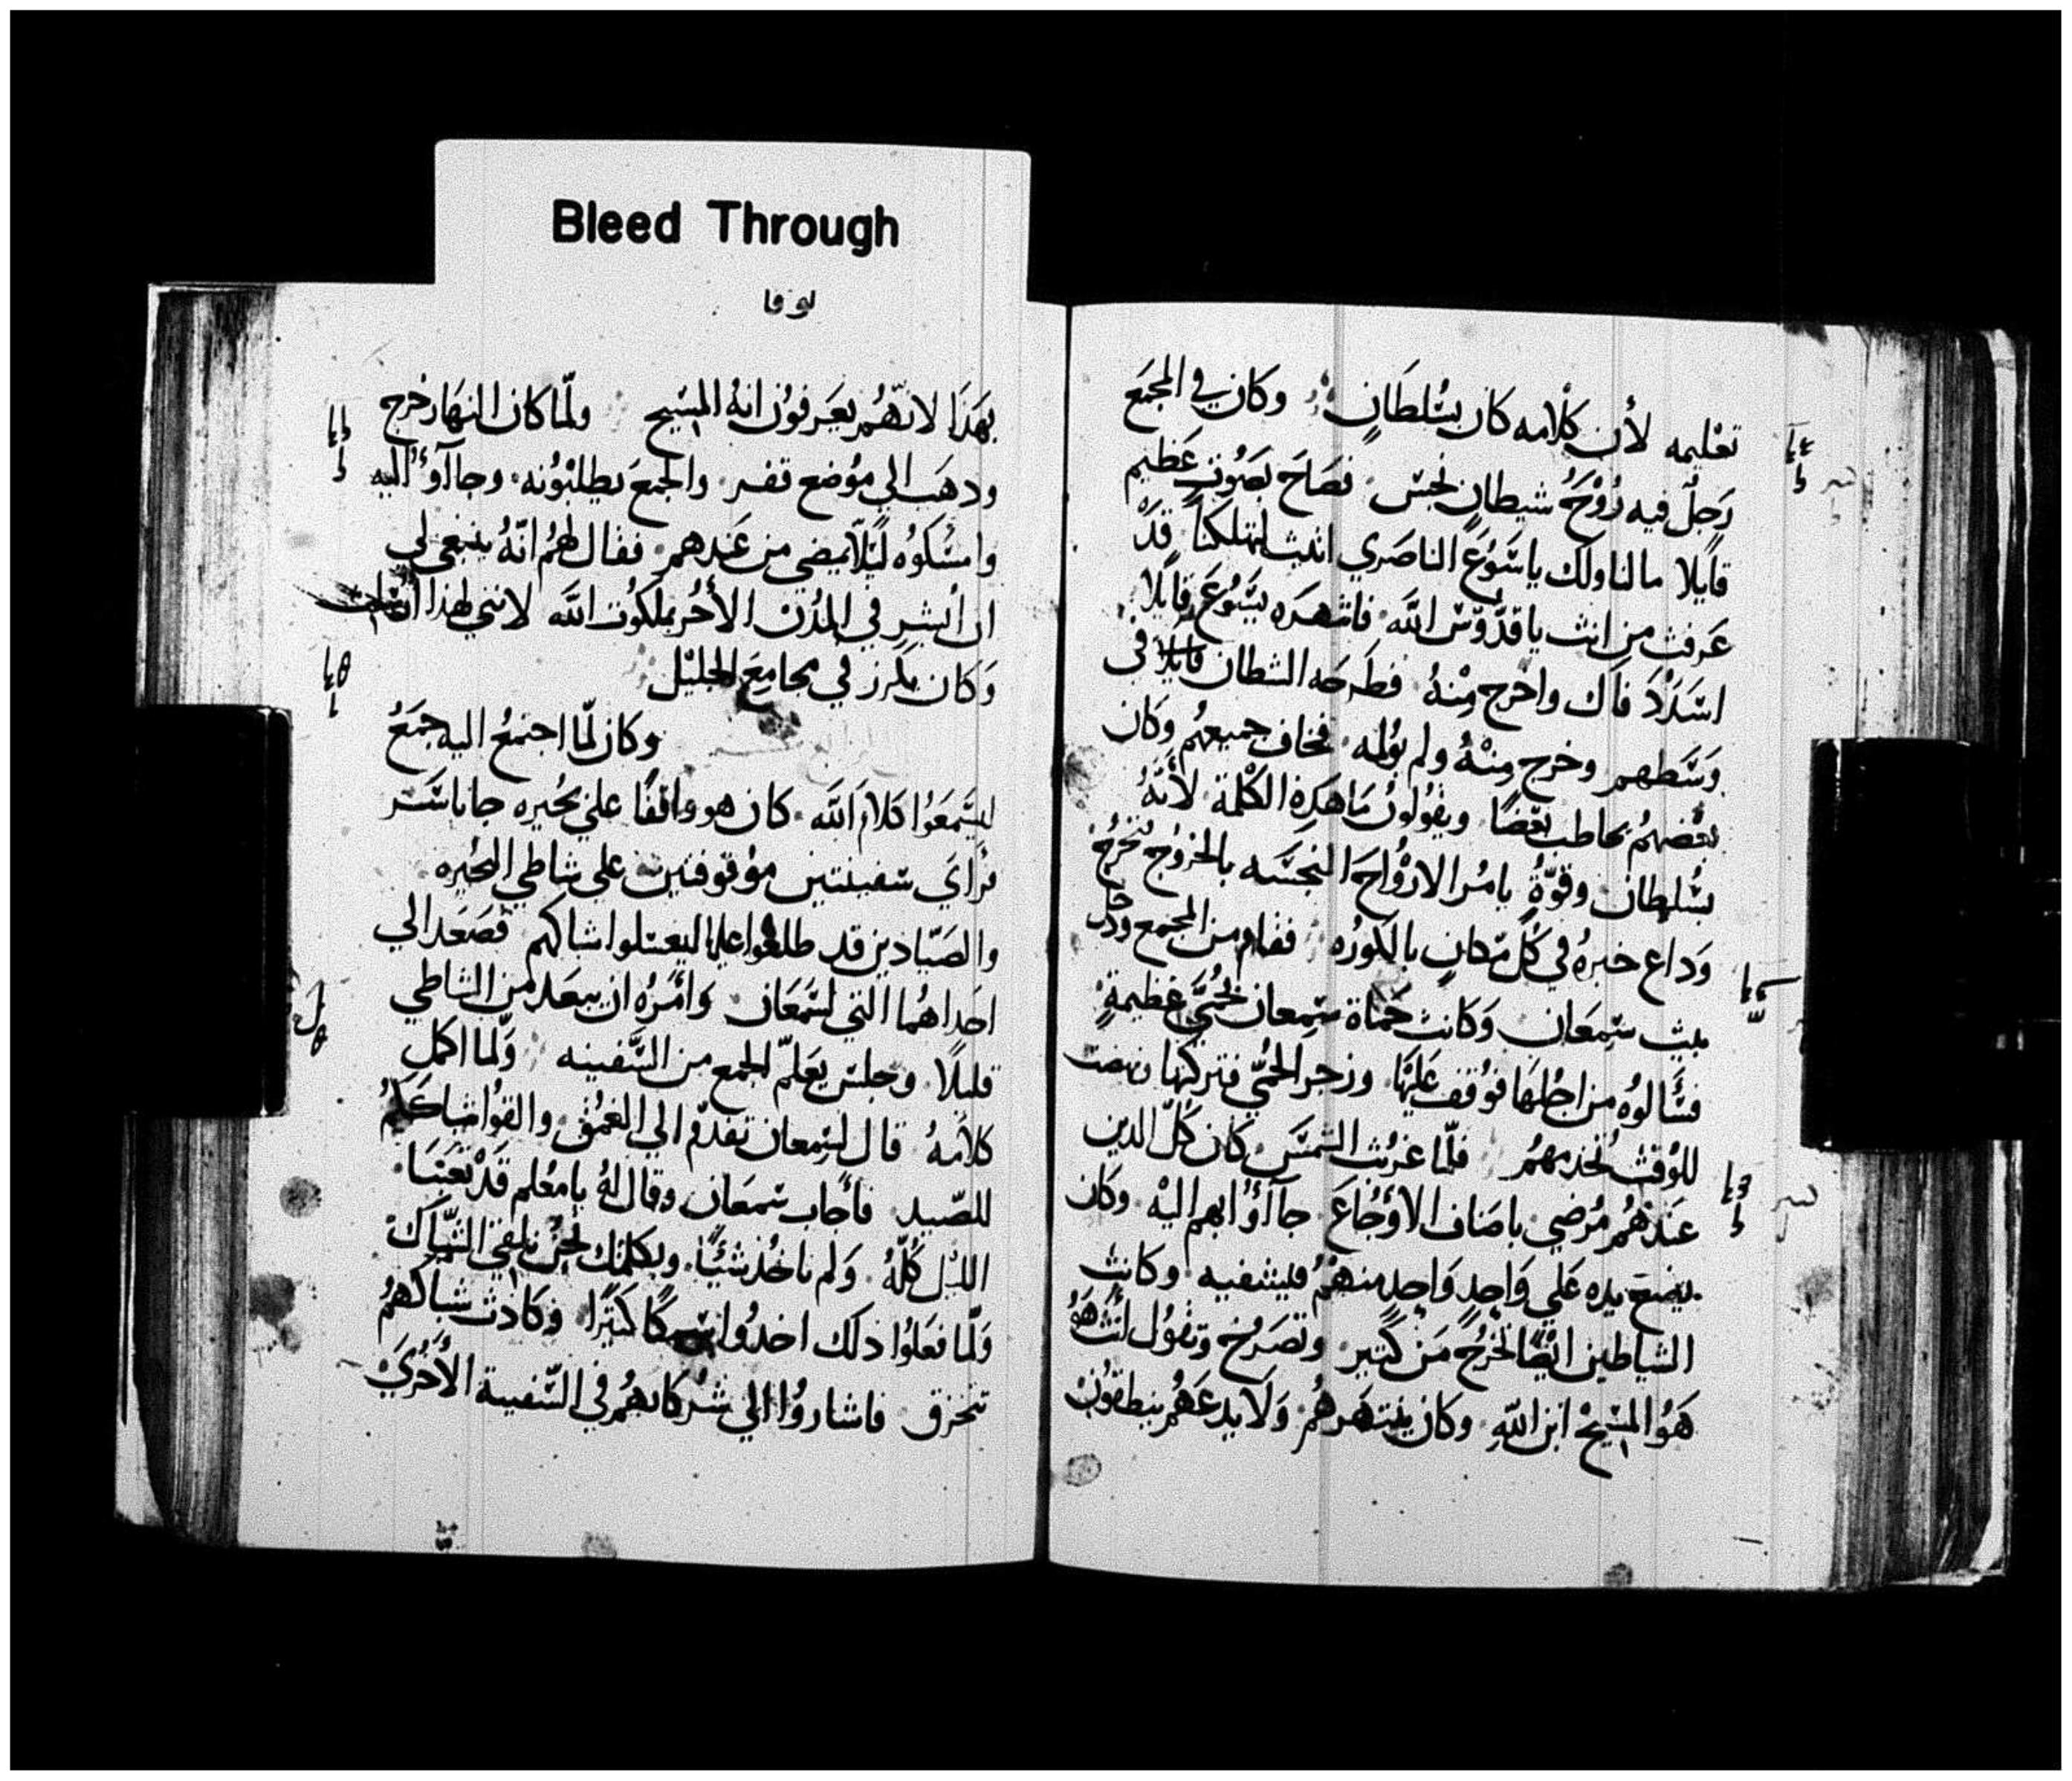 Bleed Through
لوقا
تعْليمه لأن كلامه كان بسُلطَانٍ وكان في المجمَع
رَجلٌ فيه رُوْحُ شيطانٍ نجسٍ فصَاحَ بصَوُتٍ عَظيم
قايلا مالنا ولك ياسَوُعَ الناصَري اتيت لتهلكنا قدَ
عَرفت من انت يا قدّوُسَ اللّه فانتهرَه يسَوُعَ قايلا
اسَددْ فاك واخرج مِنْهُ فطَرحَه الشطان في
وسَطهم وخرج مِنْهُ ولم يوُلمه فخاف جميعهُم وكان
بعْضهمُ يخاطب بعضًا ويقوُلونُ مَا هَدِه الكلمة لأنهُ
بسُلطان وقوّةٍ يامُر الارْواحَ النجسَه بالخروُج فتخرُج
وَداع خبرهُ في كُل مَكانٍ بالكورُه فقام من المجمع ودخل
بيت سَمِعَان وَكانت حَماة سَمِعان بحُمَّيَ عَظيمةٍ
فسَالوُه من اجْلهَا فوُقف عَليهَا وزجر الحُميّ فتركتها
للوُقت تخدمهمُ فلمّا غربُت الشمسَ كان كُلّ الدين
عَندهُمُ مُرضي باصَناف الأوْجُاعَ جآاوُا بهم اليْه وكان
يضع يده عَلي وَاحِدٍ وَاحِدٍ منهمُ فيشفيه وكانت
الشياطين ايْضًا تخرجُ مَن كثير وتصَرخُ وتقوُل انتَ هَوُ
هَوُ المسَيحْ ابن اللّه وكان ينتهَرهمُ وَلا يدعَهمُ ينطقوُن
بهَدَا لانهّمُ يعَرفوُن انهُ المسَيح ولمّا كان النهَار خرج
ودهَب الي موُضع قفر والجمَع يطلبْوُنه وجاآوُ اليه
وامسَكوُه ليْلاَّ يمضي من عَندهم فقال لهمُ انّهُ ينبغي لي
ان أبشر في المدُن الأخُر بملكوُت اللّه لانني لهذا
وَكان يكرز في مجامِعَ الجليْل
وكان لمّا اجتمعُ اليه جمَعُ
ليسَمعَوُا كلامَ اللّه كان هو واقفًا علي بحُيره جاناسَر
فرَأيَ سَفينتين موُقوفتين علي شاطي البحُيره
والصَيّادين قد طلعوا ليغسَلوا شباكهم فصَعَد الي
احَداهُما التي لسَمعَان وَامَرهُ ان يبعَد من الشاطي
قليلًا وجلسَ يعَلمّ الجمع من السَّفينه ولمّا اكمل
كلامَهُ قال لسَمِعان تقدمّ الي الغمُق والقوُا شباكَكمُ
للصّيد فأجاب سَمعَان وقال لهُ يا معُلم قدْ تعَبنا
الليْل كُلّهُ وَلم ناخُد شيْئًا وبكلمتك نحنُ نلقي الشّباك
ولمّا فعَلوُا ذلك اخدوُا سَمكًا كثيرًا وَكادت شباكهمُ
تنخرق فاشاروُا الي شرُكايهمُ في السَّفينة الأخُريَ